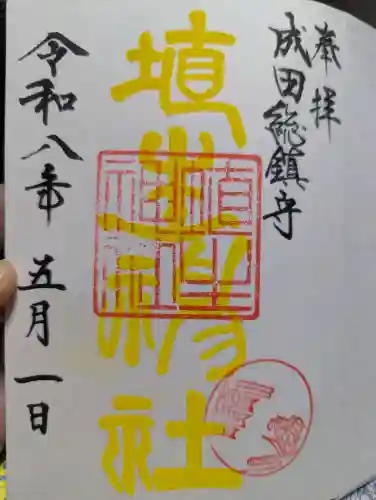 奉拝
成田総鎮守
埴生神社
埴生神社
令和八年 五月一日